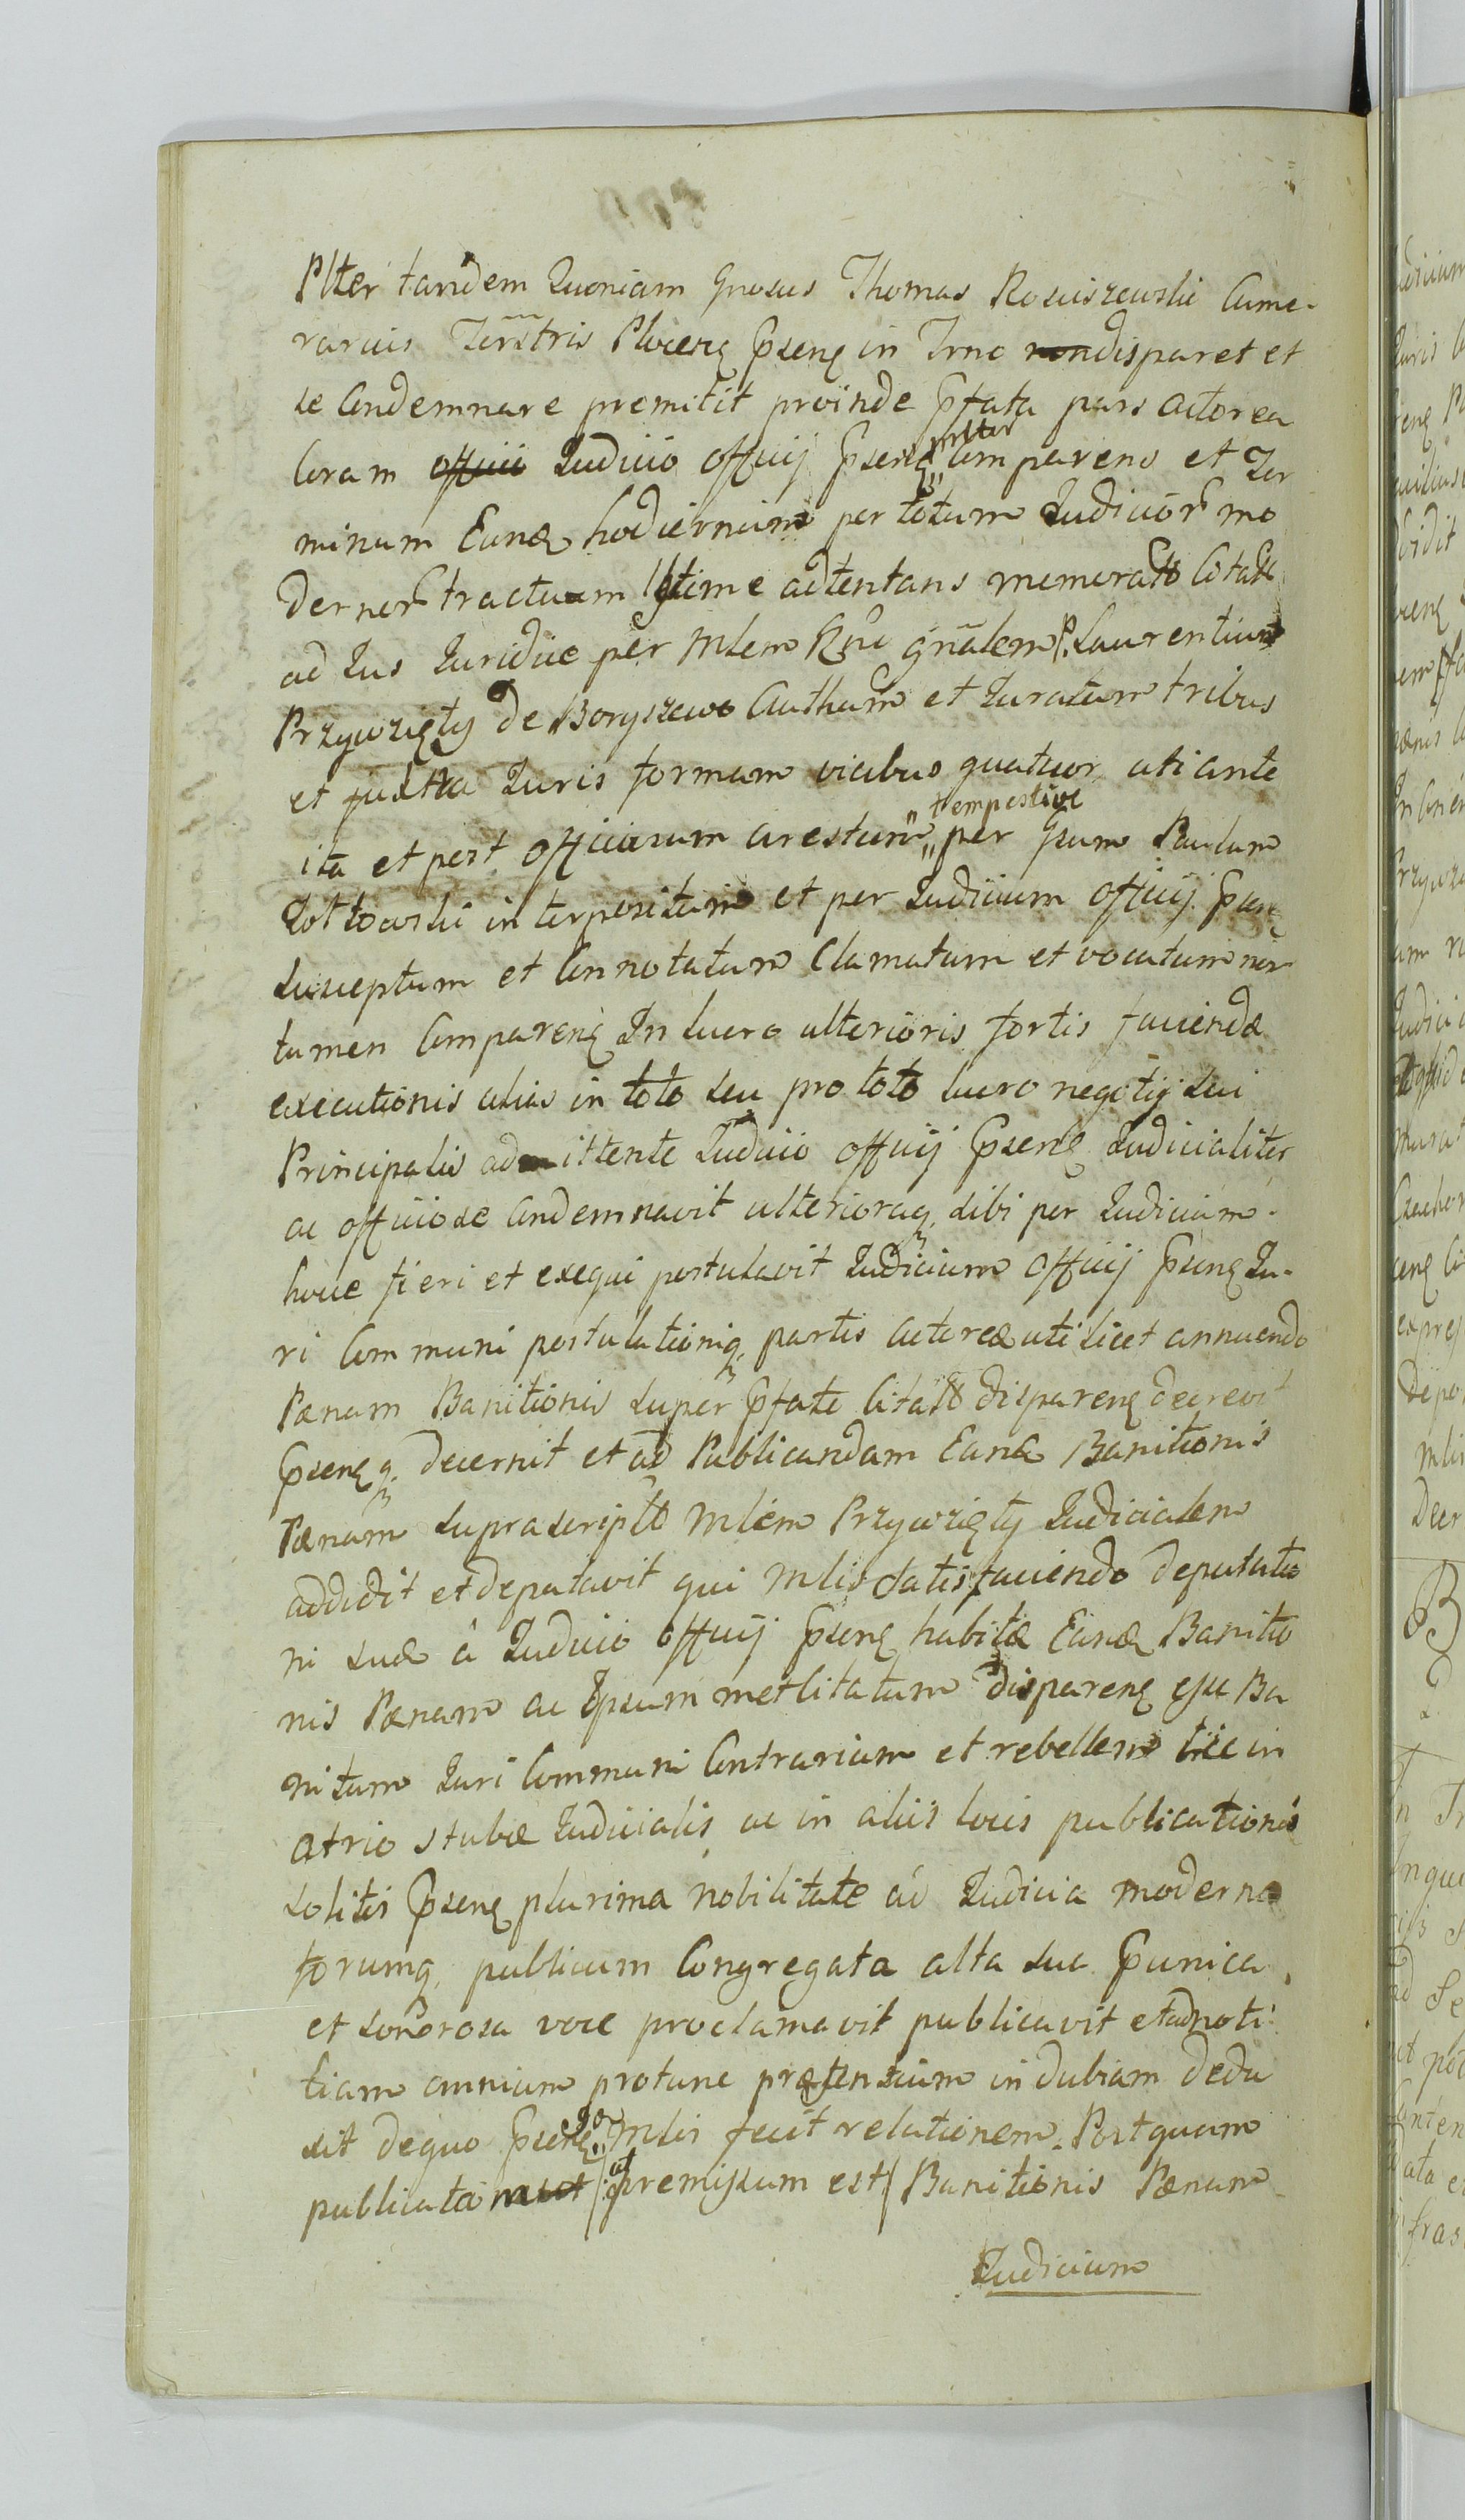 Plter tandem Quoniam Gnosus Thomas Rosciszewski Came-
rarius Terrstris Plocens pseng in Trno non disparet et
se Condemnare premitit proinde pfata pars actorea
Coram officii Iudicio officij pseng "prltar" Comparens et Ter
minum Eund hodiernum per totum Iudicior mo
dernor tractuum lgtime adtentans memorato Cotato
ad Ius Iuridice per Mlem Rgni gnalem P. Laurentium
Przywzięty de Boryszewo Authum et Iuratum tribus
et juxta Iuris formam vicibus quatuor uti ante
ita et post officiosum arestum "tempestive" per Gsum Paulum
Zottowski interpositum et per Iudicium officij psen
susceptum et Connotatum Clamatum et vocatum non
tamen Compareng In lucro ulterioris fortis faciendæ
executionis alias in toto seu pro toto lucro negotij sui
Principalis admittente Iudicio officij pseng Iudicialiter
ac officiose Condemnavit ulterioraq sibi per Iudicium
hocce fieri et exequi postulavit Iudicium officij pseng Iu-
ri Communi postulationiq partis actoreæ uti licet annuendo
Pænam Banitionis super pfate Citato dispareng decrevit
psengq decernit et ad Publicandam Eand Banitionis
Pænam suprascripto Mlem Przywzięty Iudicialem
addidit et deputavit qui Mlis satisfaciendo deputatio
ni suæ à Iudicio officij pseng habitæ Eand Banitio
nis Pænam ac Ipsummet Citatum dispareng esse Ba
nitum Iuri Communi Contrarium et rebellem hic in
atrio stubæ Iudicialis ac in aliis locis publicationis
solitis pseng plurima nobilitate ad Iudicia moderna
forumq publicum Congregata alta sua punica
et sonorosa voce proclamavit publicavit et ad noti
tiam omnium protunc præsentium indubiam dedu
xit de quo pseng "Id" Mlis fecit relationem. Postquam
publicatam /: ut premissum est / Banitionis Pænam
Iudicium